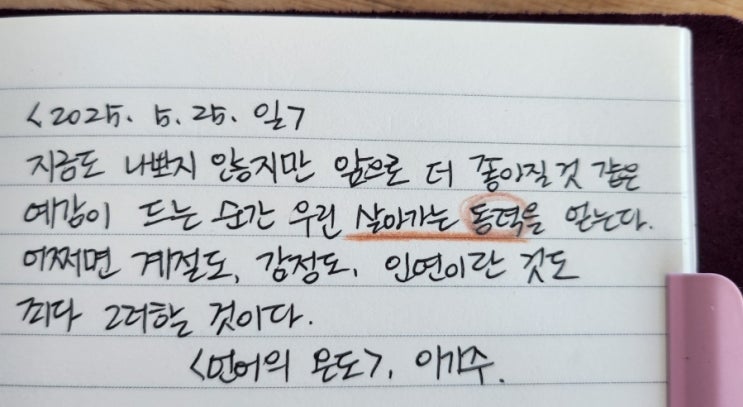 <2025. 5. 25. 일>
지금도 나쁘지 않지만 앞으로 더 좋아질 것 같은
예감이 드는 순간 우린 살아가는 동력을 얻는다.
어쩌면 계절도, 감정도, 인연이란 것도
죄다 그러할 것이다.
<언어의 온도>, 이기주.